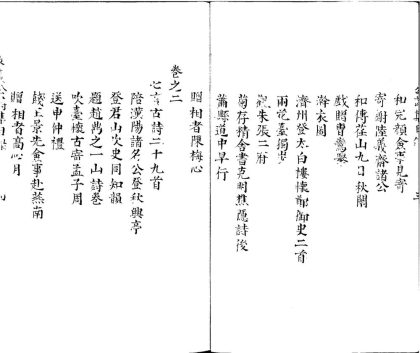 和完顏僉事見寄
寄謝陸義齋諸公
和傅崔山九日秋闈
戲贈費鶯
海衣圖
濟州登太白樓懷鄭御史二首
雨花臺獨步
朱張二府
菊存精舍書克明焦隱詩後
蕭縣道中早行
贈相者陳梅心
卷之二
七言古詩二十九首
陪漢陽諸名公登秋興亭
登君山次史同知韻
題趙鶚之一山詩卷
吹臺懷古寄孟子周
送申仲禮
餞王景先僉事赴燕南
贈相者高心月